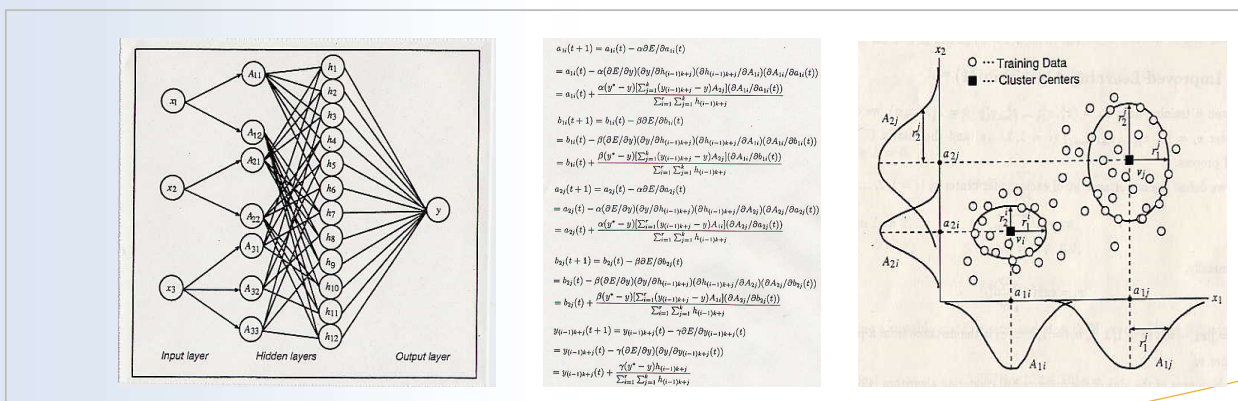 A₁₁
h₁
x₁
h₂
h₃
A₁₂
h₄
A₂₁
h₅
x₂
h₆
A₂₂
h₇
y
h₈
A₃₁
h₉
x₃
A₃₂
h₁₀
h₁₁
A₃₃
h₁₂
Input layer Hidden layers Output layer
a₁ᵢ(t + 1) = a₁ᵢ(t) − α∂E/∂a₁ᵢ(t)
= a₁ᵢ(t) − α(∂E/∂y)(∂y/∂h₍ᵢ₋₁₎ₖ₊ⱼ)(∂h₍ᵢ₋₁₎ₖ₊ⱼ/∂A₁ᵢ)(∂A₁ᵢ/∂a₁ᵢ(t))
= a₁ᵢ(t) + α(y* − y)[∑ᵏⱼ₌₁(y₍ᵢ₋₁₎ₖ₊ⱼ − y)A₂ⱼ](∂A₁ᵢ/∂a₁ᵢ(t)) / ∑ʳᵢ₌₁ ∑ᵏⱼ₌₁ h₍ᵢ₋₁₎ₖ₊ⱼ
b₁ᵢ(t + 1) = b₁ᵢ(t) − β∂E/∂b₁ᵢ(t)
= b₁ᵢ(t) − β(∂E/∂y)(∂y/∂h₍ᵢ₋₁₎ₖ₊ⱼ)(∂h₍ᵢ₋₁₎ₖ₊ⱼ/∂A₁ᵢ)(∂A₁ᵢ/∂b₁ᵢ(t))
= b₁ᵢ(t) + β(y* − y)[∑ᵏⱼ₌₁(y₍ᵢ₋₁₎ₖ₊ⱼ − y)A₂ⱼ](∂A₁ᵢ/∂b₁ᵢ(t)) / ∑ʳᵢ₌₁ ∑ᵏⱼ₌₁ h₍ᵢ₋₁₎ₖ₊ⱼ
a₂ⱼ(t + 1) = a₂ⱼ(t) − α∂E/∂a₂ⱼ(t)
= a₂ⱼ(t) − α(∂E/∂y)(∂y/∂h₍ᵢ₋₁₎ₖ₊ⱼ)(∂h₍ᵢ₋₁₎ₖ₊ⱼ/∂A₂ⱼ)(∂A₂ⱼ/∂a₂ⱼ(t))
= a₂ⱼ(t) + α(y* − y)[∑ʳᵢ₌₁(y₍ᵢ₋₁₎ₖ₊ⱼ − y)A₁ᵢ](∂A₂ⱼ/∂a₂ⱼ(t)) / ∑ʳᵢ₌₁ ∑ᵏⱼ₌₁ h₍ᵢ₋₁₎ₖ₊ⱼ
b₂ⱼ(t + 1) = b₂ⱼ(t) − β∂E/∂b₂ⱼ(t)
= b₂ⱼ(t) − β(∂E/∂y)(∂y/∂h₍ᵢ₋₁₎ₖ₊ⱼ)(∂h₍ᵢ₋₁₎ₖ₊ⱼ/∂A₂ⱼ)(∂A₂ⱼ/∂b₂ⱼ(t))
= b₂ⱼ(t) + β(y* − y)[∑ʳᵢ₌₁(y₍ᵢ₋₁₎ₖ₊ⱼ − y)A₁ᵢ](∂A₂ⱼ/∂b₂ⱼ(t)) / ∑ʳᵢ₌₁ ∑ᵏⱼ₌₁ h₍ᵢ₋₁₎ₖ₊ⱼ
y₍ᵢ₋₁₎ₖ₊ⱼ(t + 1) = y₍ᵢ₋₁₎ₖ₊ⱼ(t) − γ∂E/∂y₍ᵢ₋₁₎ₖ₊ⱼ(t)
= y₍ᵢ₋₁₎ₖ₊ⱼ(t) − γ(∂E/∂y)(∂y/∂y₍ᵢ₋₁₎ₖ₊ⱼ(t))
= y₍ᵢ₋₁₎ₖ₊ⱼ(t) + γ(y* − y)h₍ᵢ₋₁₎ₖ₊ⱼ / ∑ʳᵢ₌₁ ∑ᵏⱼ₌₁ h₍ᵢ₋₁₎ₖ₊ⱼ
x₂
··· Training Data
··· Cluster Centers
A₂ⱼ
r₂ʲ
r₂ʲ
r₁ʲ
a₂ⱼ
vⱼ
r₂ⁱ
r₁ⁱ
a₂ᵢ
vᵢ
A₂ᵢ
a₁ᵢ
a₁ⱼ
x₁
r₁ʲ
A₁ᵢ
A₁ⱼ